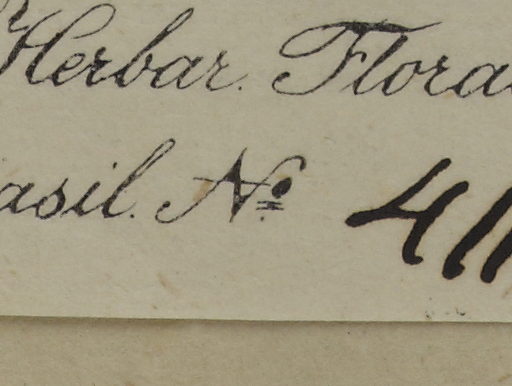 Herbar. Florae
asil. No. 411